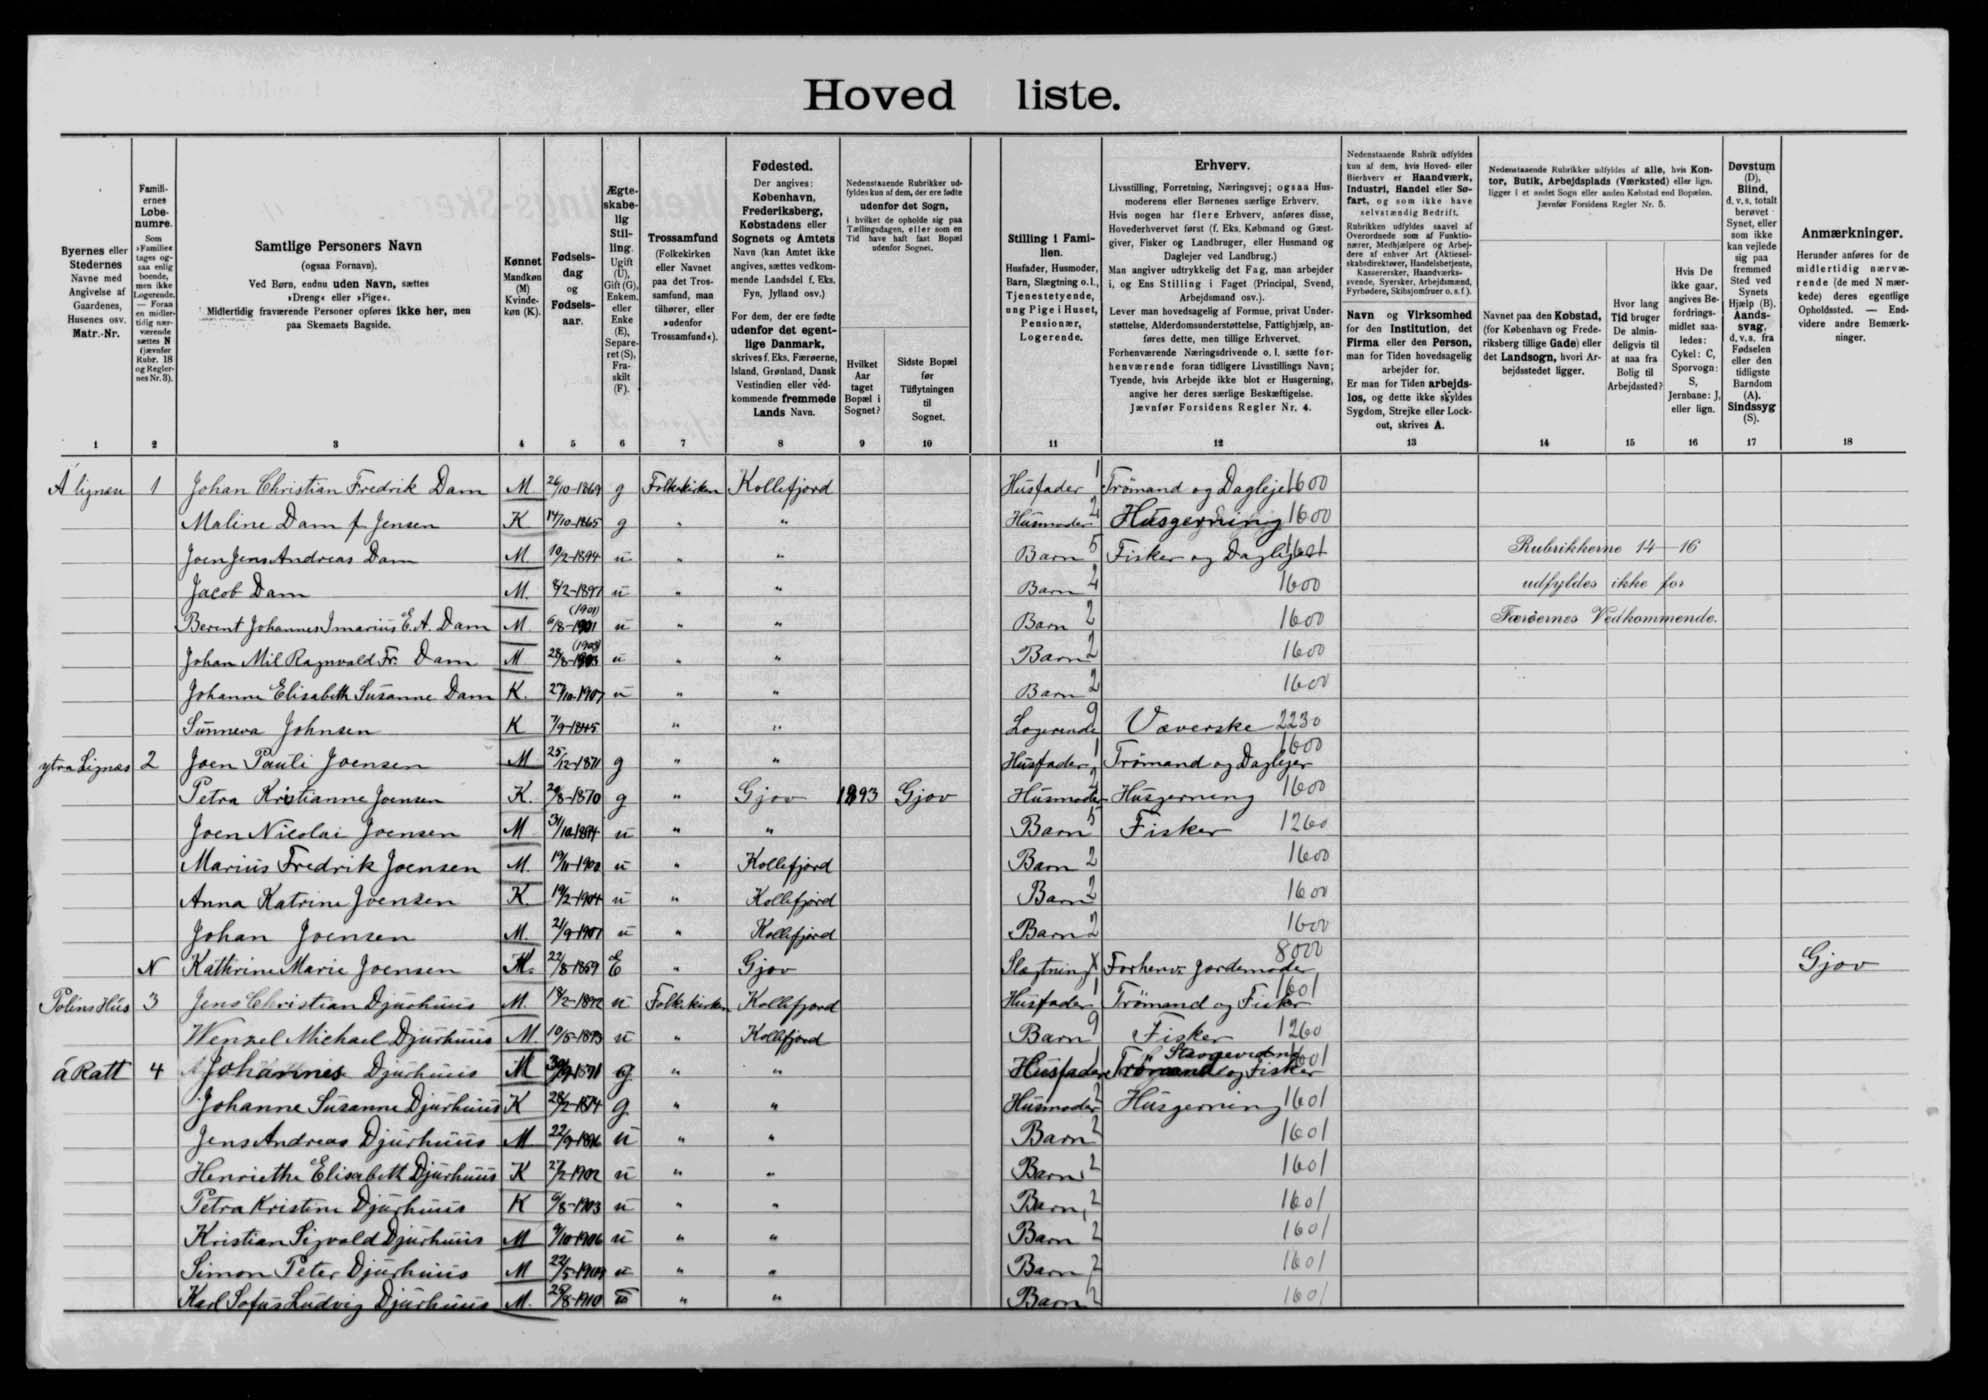 Hoved liste.
Byernes eller Stedernes Navne med Angivelse af Gaardenes, Husenes osv. Matr.-Nr.
Famili-ernes Løbe-numre.
Som »Familie« tages og-saa enlig boende, men ikke Logerende. — Foran en midler-tidig nær-værende sættes N (jævnfør Rubr. 18 og Regler-nes Nr. 3).
Samtlige Personers Navn
(ogsaa Fornavn).
Ved Børn, endnu uden Navn, sættes
»Dreng« eller »Pige«.
Midlertidig fraværende Personer opføres ikke her, men
paa Skemaets Bagside.
Kønnet
Mandkøn (M) Kvinde-køn (K).
Fødsels-dag og Fødsels-aar.
Ægte-skabe-lig Stil-ling.
Ugift (U), Gift (G), Enkem. eller Enke (E), Separe-ret (S), Fra-skilt (F).
Trossamfund
(Folkekirken eller Navnet paa det Tros-samfund, man tilhører, eller »udenfor Trossamfund«).
Fødested.
Der angives: København, Frederiksberg, Købstadens eller Sognets og Amtets Navn (kan Amtet ikke angives, sættes vedkom-mende Landsdel f. Eks. Fyn, Jylland osv.)
For dem, der ere fødte udenfor det egent-lige Danmark, skrives f. Eks. Færøerne, Island, Grønland, Dansk Vestindien eller ved-kommende fremmede Lands Navn.
Nedenstaaende Rubrikker ud-fyldes kun af dem, der ere fødte udenfor det Sogn, i hvilket de opholde sig paa Tællingsdagen, eller som en Tid have haft fast Bopæl udenfor Sognet.
Hvilket Aar taget Bopæl i Sognet?
Sidste Bopæl før Tilflytningen til Sognet.
Stilling i Fami-lien.
Husfader, Husmoder, Barn, Slægtning o.l., Tjenestetyende, ung Pige i Huset, Pensionær, Logerende.
Erhverv.
Livsstilling, Forretning, Næringsvej; ogsaa Hus-moderens eller Børnenes særlige Erhverv.
Hvis nogen har flere Erhverv, anføres disse, Hovederhvervet først (f. Eks. Købmand og Gæst-giver, Fisker og Landbruger, eller Husmand og Daglejer ved Landbrug.)
Man angiver udtrykkelig det Fag, man arbejder i, og Ens Stilling i Faget (Principal, Svend, Arbejdsmand osv.).
Lever man hovedsagelig af Formue, privat Under-støttelse, Alderdomsunderstøttelse, Fattighjælp, an-føres dette, men tillige Erhvervet.
Forhenværende Næringsdrivende o. l. sætte for-henværende foran tidligere Livsstillings Navn; Tyende, hvis Arbejde ikke blot er Husgerning, angive her deres særlige Beskæftigelse.
Jævnfør Forsidens Regler Nr. 4.
Nedenstaaende Rubrik udfyldes kun af dem, hvis Hoved- eller Bierhverv er Haandværk, Industri, Handel eller Sø-fart, og som ikke have selvstændig Bedrift.
Rubrikken udfyldes saavel af Overordnede som af Funktio-nærer, Medhjælpere og Arbej-dere af enhver Art (Aktiesel-skabsdirektører, Handelsbetjente, Kassererskér, Haandværks-svende, Syersker, Arbejdsmænd, Fyrbødere, Skibsjomfruer o. s. f.).
Navn og Virksomhed for den Institution, det Firma eller den Person, man for Tiden hovedsagelig arbejder for.
Er man for Tiden arbejds-løs, og dette ikke skyldes Sygdom, Strejke eller Lock-out, skrives A.
Nedenstaaende Rubrikker udfyldes af alle, hvis Kon-tor, Butik, Arbejdsplads (Værksted) eller lign. ligger i et andet Sogn eller anden Købstad end Bopælen.
Jævnfør Forsidens Regler Nr. 5.
Navnet paa den Købstad, (for København og Frede-riksberg tillige Gade) eller det Landsogn, hvori Ar-bejdsstedet ligger.
Hvor lang Tid bruger De almin-deligvis til at naa fra Bolig til Arbejdssted?
Hvis De ikke gaar, angives Be-fordrings-midlet saa-ledes: Cykel: C, Sporvogn: S, Jernbane: J, eller lign.
Døvstum (D), Blind, d. v. s. totalt berøvet Synet, eller som ikke kan vejlede sig paa fremmed Sted ved Synets Hjælp (B). Aands-svag, d. v. s. fra Fødselen eller den tidligste Barndom (A). Sindssyg (S).
Anmærkninger.
Herunder anføres for de midlertidig nærvæ-rende (de med N mær-kede) deres egentlige Opholdssted. — End-videre andre Bemærk-ninger.
1 2 3 4 5 6 7 8 9 10 11 12 13 14 15 16 17 18
Á lignan 1 Johan Christian Fredrik Dam M 26/10-1869 g Folkekirken Kollefjord Husfader 1 Trömand og Daglejer 1600
Maline Dam f. Jensen K 14/10-1865 g " " Husmoder 2 Husgerning 1600
Joen Jens Andreas Dam M. 10/2-1894 u " " Barn 5 Fisker og Daglejer 1601 Rubrikkerne 14-16
Jacob Dam M. 8/2-1897 u " " Barn 2 1600 udfyldes ikke for
Berent Johannes Imarius E. A. Dam M 6/8-1901 (1901) u " " Barn 2 1600 Færøernes Vedkommende.
Johan Mil Ragnvald Fr. Dam M 28/8-1903 (1903) u " " Barn 2 1600
Johanne Elisabeth Susanne Dam K. 27/10-1907 u " " Barn 2 1600
Sunneva Johnsen K 7/9-1845 " " Logerende 9 Væverske 2230
ytra Lignas 2 Joen Pauli Joensen M 25/12-1871 g " " Husfader 1 Trömand og Daglejer 1600
Petra Kristianne Joensen K. 29/8-1870 g " Gjov 1893 Gjov Husmoder 2 Husgerning 1600
Joen Nicolai Joensen M 31/10-1894 u " " Barn 5 Fisker 1260
Marius Fredrik Joensen M. 19/11-1900 u " Kollefjord Barn 2 1600
Anna Katrine Joensen K. 19/2-1904 u " Kollefjord Barn 2 1600
Johan Joensen M. 21/9-1907 u " Kollefjord Barn 2 1600
N Kathrine Marie Joensen K. 22/8-1859 E " Gjov Slægtning X Forhenv. Jordemoder 8000 Gjov
Polins Hus 3 Jens Christian Djurhuus M. 18/2-1892 u Folkekirken Kollefjord Husfader 1 Trömand og Fisker 1601
Wenzel Michael Djurhuus M. 10/5-1893 u " Kollefjord Barn 9 Fisker 1260
á Ratt 4 Johannes Djurhuus M 1871 g " " Husfader 1 Trömand og Fisker 1601
Johanne Susanne Djurhuus K 28/2-1874 g " " Husmoder 2 Husgerning 1601
Jens Andreas Djurhuus M 22/9-1896 u " " Barn 2 1601
Henriethe Elisabeth Djurhuus K 27/2-1902 u " " Barn 2 1601
Petra Kristine Djurhuus K 6/8-1903 u " " Barn 2 1601
Kristian Sigvald Djurhuus M 9/10-1906 u " " Barn 2 1601
Simon Peter Djurhuus M 22/5-1909 u " " Barn 2 1601
Karl Sofus Ludvig Djurhuus M. 29/8-1910 u " " Barn 2 1601